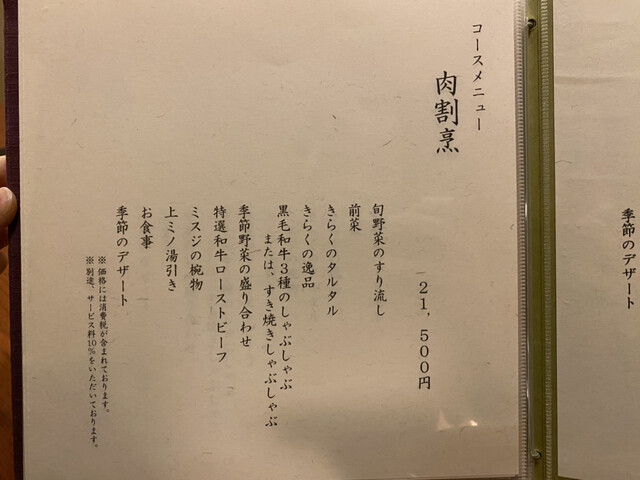 コースメニュー
肉割烹
21,500円
旬野菜のすり流し
前菜
きらくのタルタル
きらくの逸品
黒毛和牛3種のしゃぶしゃぶ
または、すき焼きしゃぶしゃぶ
季節野菜の盛り合わせ
特選和牛ローストビーフ
ミスジの椀物
上ミノ湯引き
お食事
季節のデザート
※価格には消費税が含まれております。
※別途、サービス料10%をいただいております。
季節のデザート